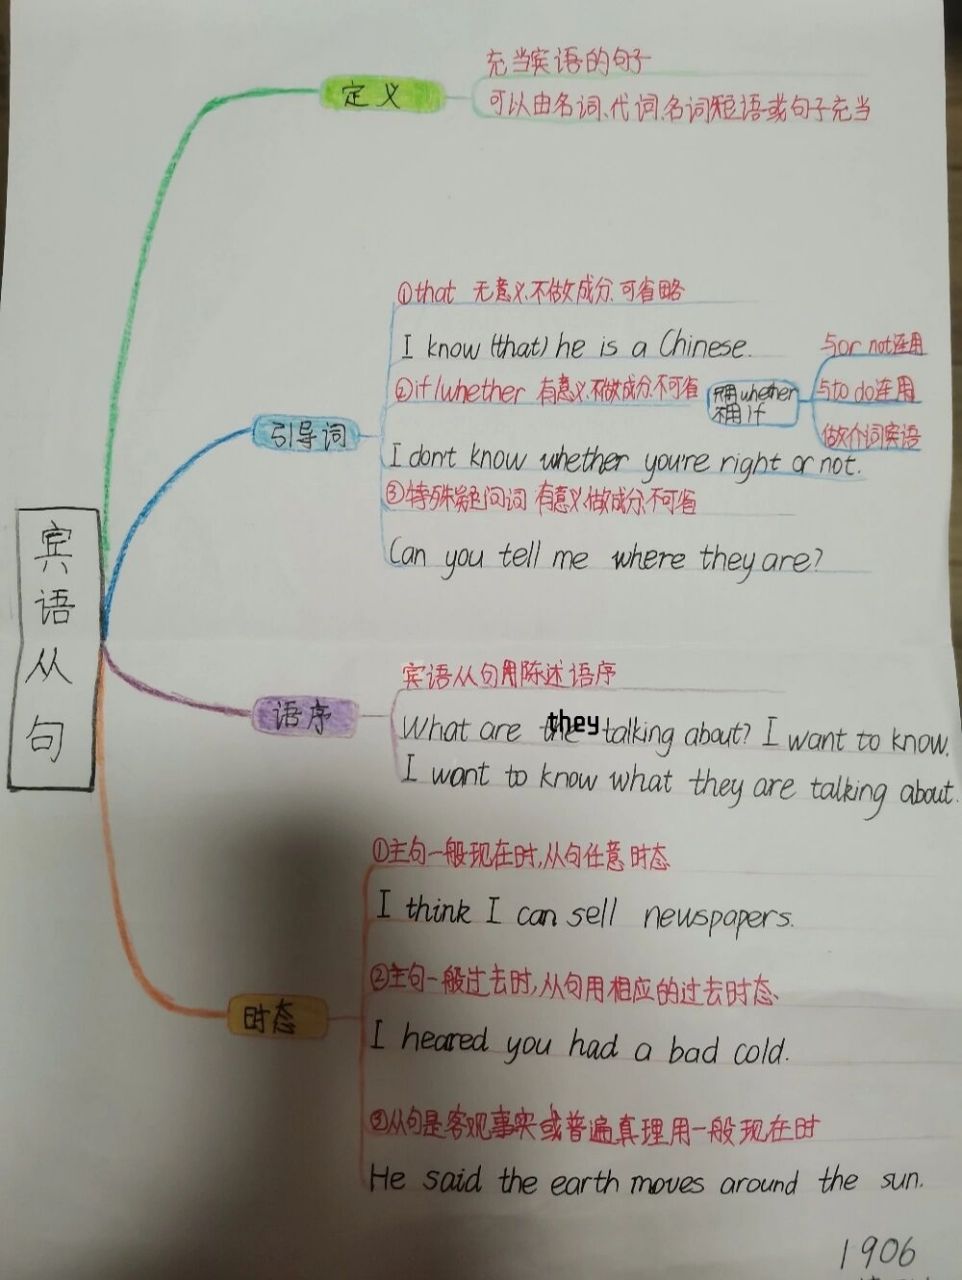 充当宾语的句子
定义
可以由名词、代词、名词短语或句子充当
①that 无意义、不做成分、可省略
I know (that) he is a Chinese.
②if/whether 有意义、不做成分、不可省
只用whether
不用if
与or not连用
与to do连用
做介词宾语
引导词
I don't know whether you're right or not.
③特殊疑问词 有意义、做成分、不可省
Can you tell me where they are?
宾语从句
宾语从句用陈述语序
语序
What are they talking about? I want to know.
I want to know what they are talking about.
①主句一般现在时,从句任意时态
I think I can sell newspapers.
②主句一般过去时,从句用相应的过去时态
时态
I heared you had a bad cold.
③从句是客观事实或普遍真理用一般现在时
He said the earth moves around the sun.
1906